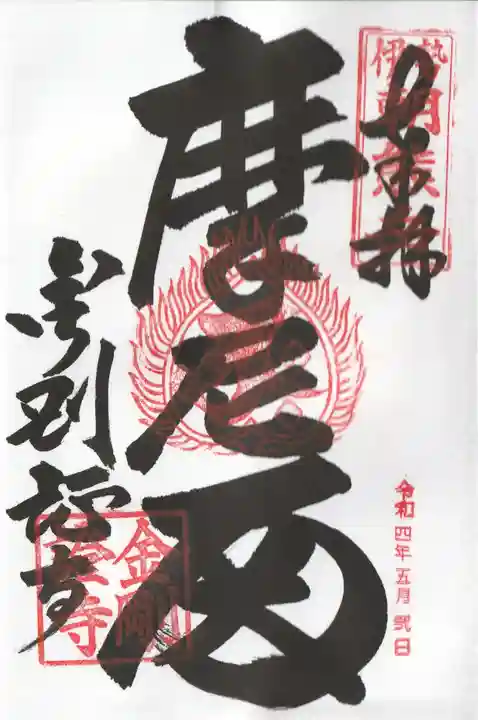 伊勢朝熊
摩尼殿
金剛證寺
金剛證寺
令和四年五月弐日